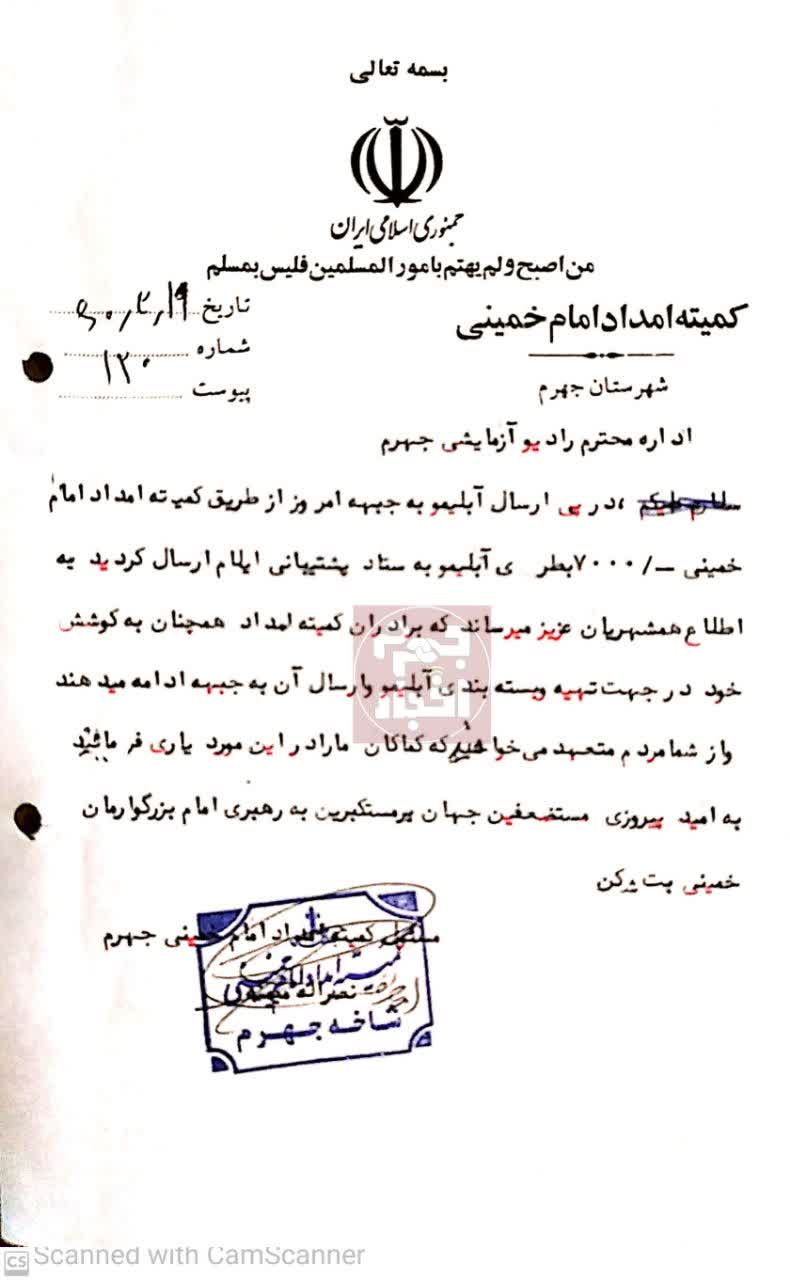 بسمه تعالی
جمهوری اسلامی ایران
من اصبح ولم یهتم بامور المسلمین فلیس بمسلم
کمیته امداد امام خمینی
شهرستان جهرم
تاریخ ۶۰٫۲٫۱۹
شماره ۱۲۰
پیوست
اداره محترم رادیو آزمایشی جهرم
سلام علیکم ، در پی ارسال آبلیمو به جبهه امروز از طریق کمیته امداد امام
خمینی ــ/۷۰۰۰ بطری آبلیمو به ستاد پشتیبانی ایلام ارسال گردید به
اطلاع همشهریان عزیز میرساند که برادران کمیته امداد همچنان به کوشش
خود در جهت تهیه وبسته بندی آبلیمو وارسال آن به جبهه ادامه میدهند
واز شما مردم متعهد می‌خواهیم که کماکان مارا در این مورد یاری فرمائید
به امید پیروزی مستضعفین جهان برمستکبرین به رهبری امام بزرگوارمان
خمینی بت شکن
مسئول کمیته امداد امام خمینی جهرم
نصراله
کمیته امداد امام خمینی
شاخه جهرم
جهرم
اخبار
CS Scanned with CamScanner